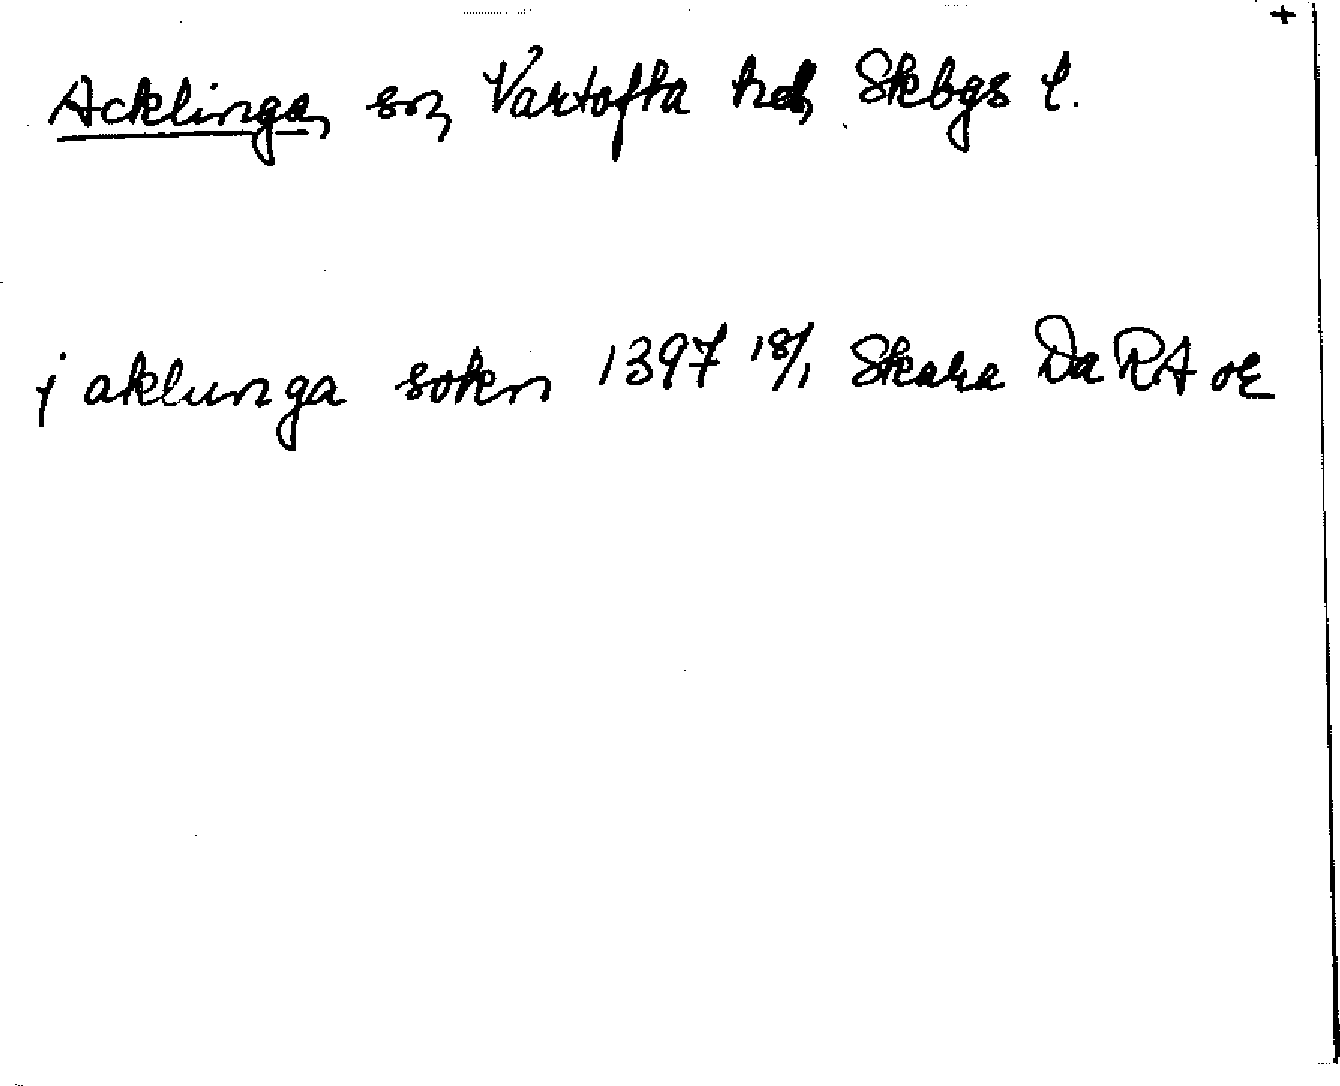 +
Acklinga, sn, Vartofta hd, Skbgs l.
j aklunga sokn 1397 18/1 Skara Da RA or